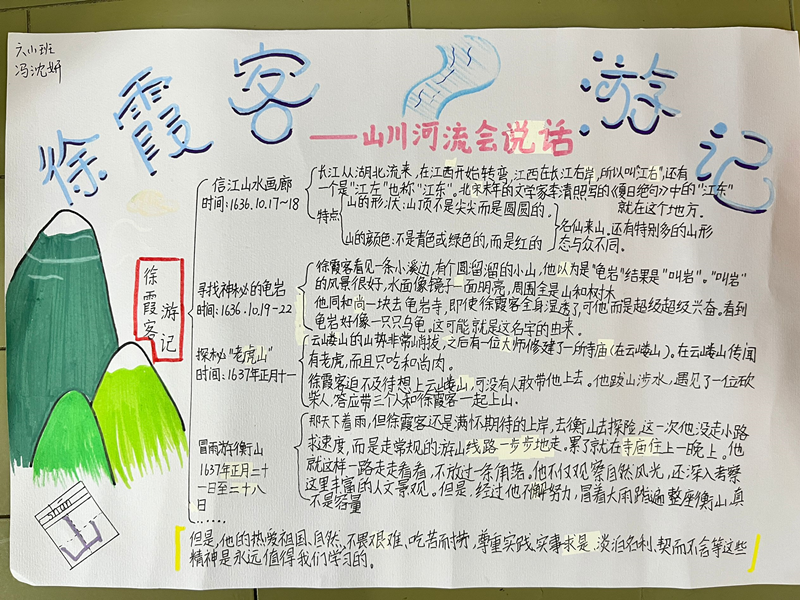 六(1)班
冯沈妍
徐霞客游记
——山川河流会说话
徐霞客
游记
信江山水画廊
时间:1636.10.17~18
长江从湖北流来,在江西开始转弯,江西在长江右岸,所以叫"江右",还有
一个是"江左"也称"江东"。北宋末年的文学家李清照写的《夏日绝句》中的"江东"
就在这个地方。
特点
山的形状:山顶不是尖尖而是圆圆的。
山的颜色:不是青色或绿色的,而是红的
名仙来山,还有特别多的山形
态与众不同。
寻找神秘的龟岩
时间:1636.10.19-22
徐霞客看见一条小溪边,有个圆溜溜的小山,他以为是"龟岩"结果是"叫岩"。"叫岩"
的风景很好,水面像镜子一面明亮,周围全是山和树木
他同和尚一块去龟岩寺,即使徐霞客全身湿透了,可他而是超级超级兴奋。看到
龟岩好像一只只乌龟。这可能就是这名字的由来。
探秘"老虎山"
时间:1637年正月十一
云嵝山的山势非常峭拔,之后有一位大师修建了一所寺庙(在云嵝山)。在云嵝山传闻
有老虎,而且只吃和尚肉。
徐霞客迫不及待想上云嵝山,可没有人敢带他上去。他跋山涉水,遇见了一位砍
柴人、答应带三个人和徐霞客一起上山。
冒雨游衡山
1637年正月二十
一日至二十八
日
那天下着雨,但徐霞客还是满怀期待的上岸,去衡山去探险,这一次他没走小路
求速度,而是走常规的游山线路一步步地走。累了就在寺庙住上一晚上。他
就这样一路走走看看,不放过一条角落。他不仅观察自然风光,还深入考察
这里丰富的人文景观。但是,经过他不懈努力,冒着大雨踏遍整座衡山,真
不是容量
……
山
但是,他的热爱祖国、自然、不畏艰难、吃苦而耐劳,尊重实践、实事求是、淡泊名利、契而不舍等这些
精神是永远值得我们学习的。